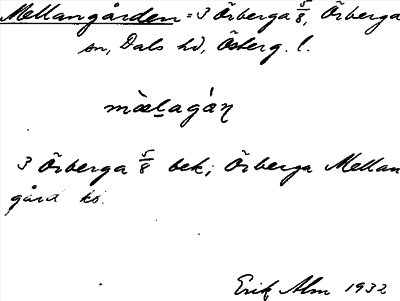 Mellangården = 3 Örberga 5/8, Örberga
sn, Dals hd, Österg. l.
mæ̀lagáṇ
3 Örberga 5/8 bek; Örberga Mellan
gård ks.
Erik Alm 1932